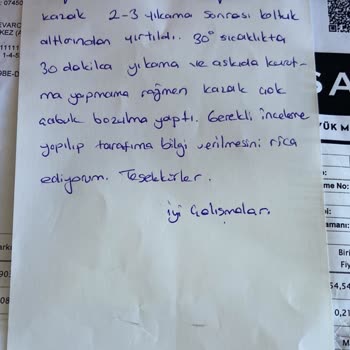 07450
EVARC
KEZ (A
11111
1-4-5
9BE-D
kazak 2-3 yıkama sonrası koltuk
altlarından yırtıldı. 30° sıcaklıkta
30 dakika yıkama ve askıda kurut-
ma yapmama rağmen kazak çok
çabuk bozulma yaptı. Gerekli inceleme
yapılıp tarafıma bilgi verilmesini rica
ediyorum. Teşekkürler.
İyi Çalışmalar.
SA
YÜK M
me No:
amanı:
Biri
Fiy
54,54
0,21